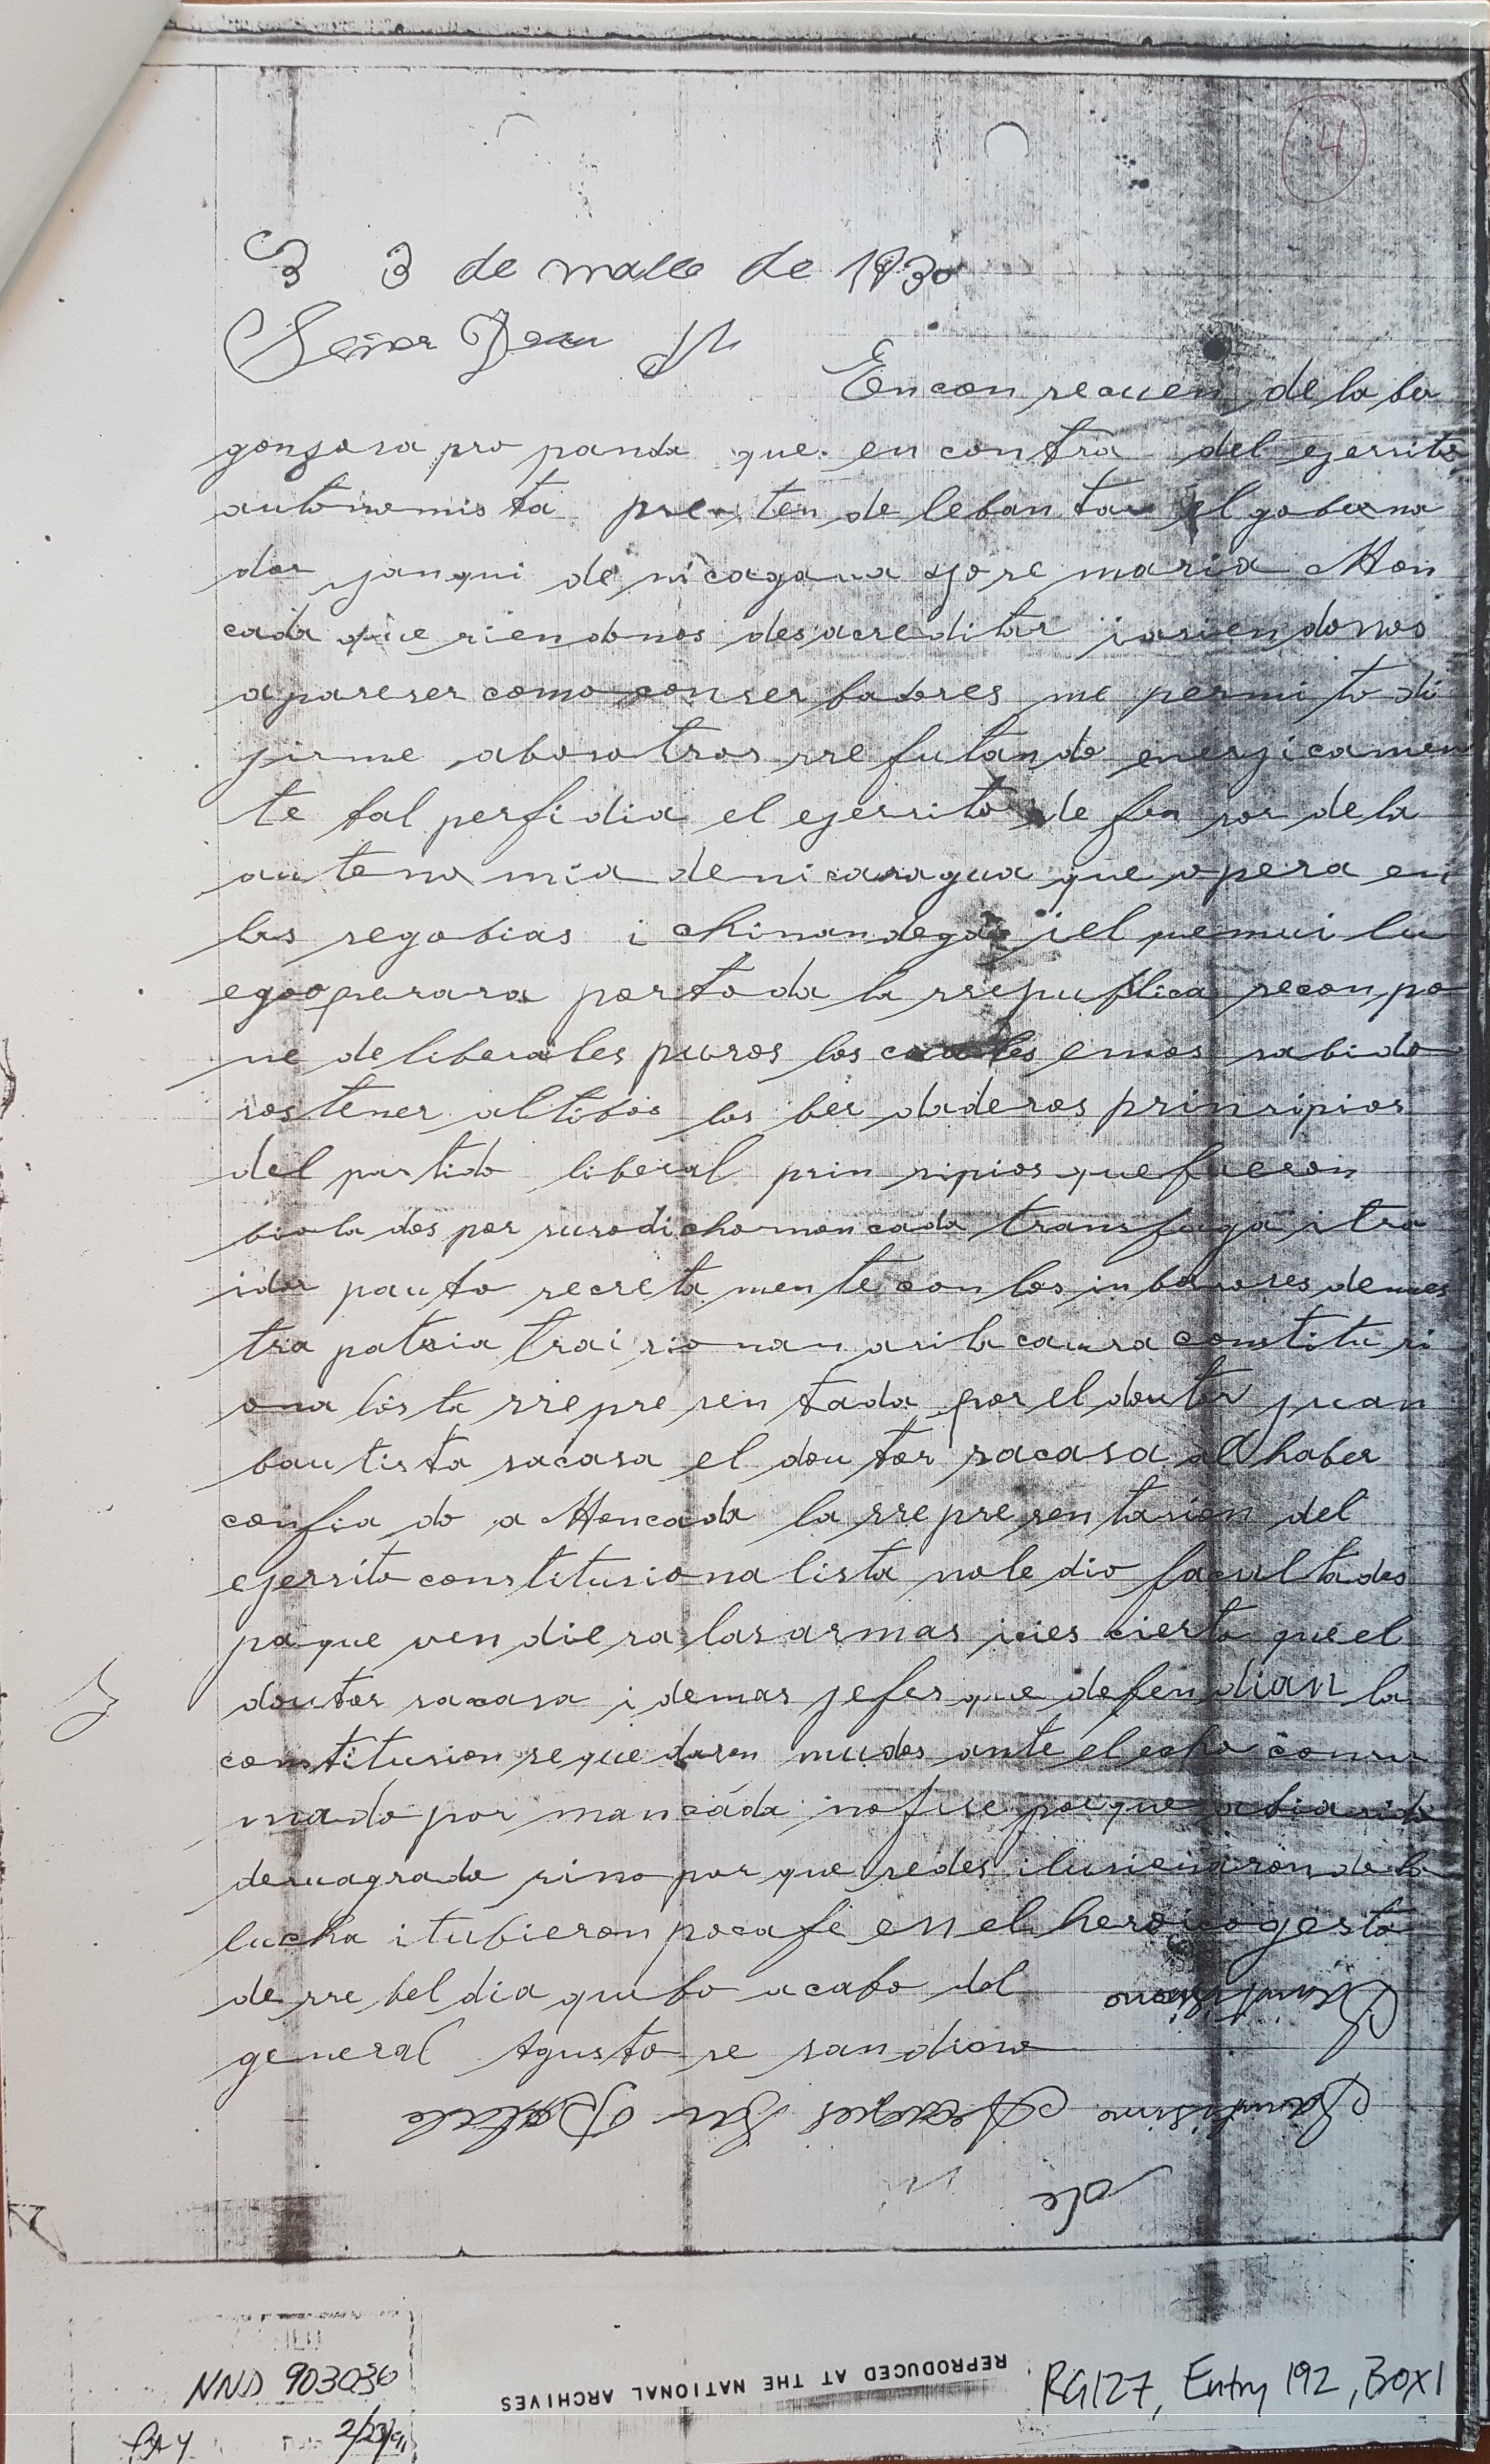 4
3 de malls de 1930
Señor
En con secuen de la ber
gonsosa pro panda que en contra del ejersito
autonomista pre ten de leban tar el goberna
dor yanqui de nicagana jose maria Mon
cada que riendonos desacreditar jasien donos
a pareser como conser badores me permi to di
jirme abosotros rre futando enerjicamen
te tal perfidia el ejersito de fen sor de la
autono mia de nicaragua que opera en
las segobias i chinandega i el que mui lu
egooperara por to da la rrepublica se con po
ne de liberales puros los cuales emos sabido
sos tener altibos los ber daderos prinsipios
del partido liberal prin sipios que fueron
biola dos por susodicho moncada transfuga i tra
idor pauto secreta mente con los inbasores de nues
tra patria trai sio nan asi la causa constitu si
ona lista rrepre sen tada por el doutor juan
bautista sacasa el dou tor sacasa al haber
confia do a Moncada la rrepre sen tasion del
ejersito constitusiona lista no le dio facultades
pa que ven die ra las armas i si es cierto que el
doutor sacasa i demas jefes que defen dian la
constitusion se que daron mudos ante el echo consu
mado por mancada no fue por que abia sido
de su agrado sino por que se des ilusionaron de la
lucha i tubieron poca fe en el heroico gesto
de rre bel dia que bo a cabo del
general Agusto se sandino
Sandisimo
de
NND 903036
2/23/91
REPRODUCED AT THE NATIONAL ARCHIVES
RG127, Entry 192, BOX1